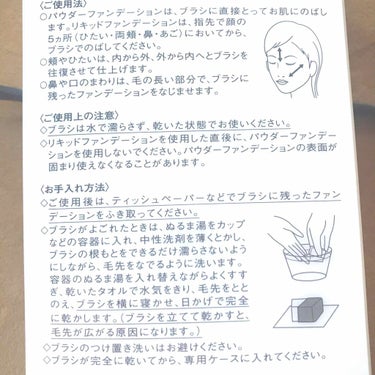 〈ご使用法〉
○パウダーファンデーションは、ブラシに直接とってお肌にのばし
ます。リキッドファンデーションは、指先で顔の
5ヵ所(ひたい・両頬・鼻・あご)においてから、
ブラシでのばしてください。
○頬やひたいは、内から外、外から内へとブラシを
往復させて仕上げます。
○鼻や口のまわりは、毛の長い部分で、ブラシに
残ったファンデーションをなじませます。
〈ご使用上の注意〉
◇ブラシは水で濡らさず、乾いた状態でお使いください。
◇リキッドファンデーションを使用した直後に、パウダーファンデー
ションを使用しないでください。パウダーファンデーションの表面が
固まり使えなくなることがあります。
〈お手入れ方法〉
◇ご使用後は、ティッシュペーパーなどでブラシに残ったファン
デーションをふき取ってください。
◇ブラシがよごれたときは、ぬるま湯をカップ
などの容器に入れ、中性洗剤を薄くとかし、
ブラシの根もとをできるだけ濡らさないよう
にしながら、毛先をなでるように洗います。
容器のぬるま湯を入れ替えながらよくすす
ぎ、乾いたタオルで水気をきり、毛先をとと
のえ、ブラシを横に寝かせ、日かげで完全
に乾かします。(ブラシを立てて乾かすと、
毛先が広がる原因になります。)
◇ブラシのつけ置き洗いはお避けください。
◇ブラシが完全に乾いてから、専用ケースに入れてください。